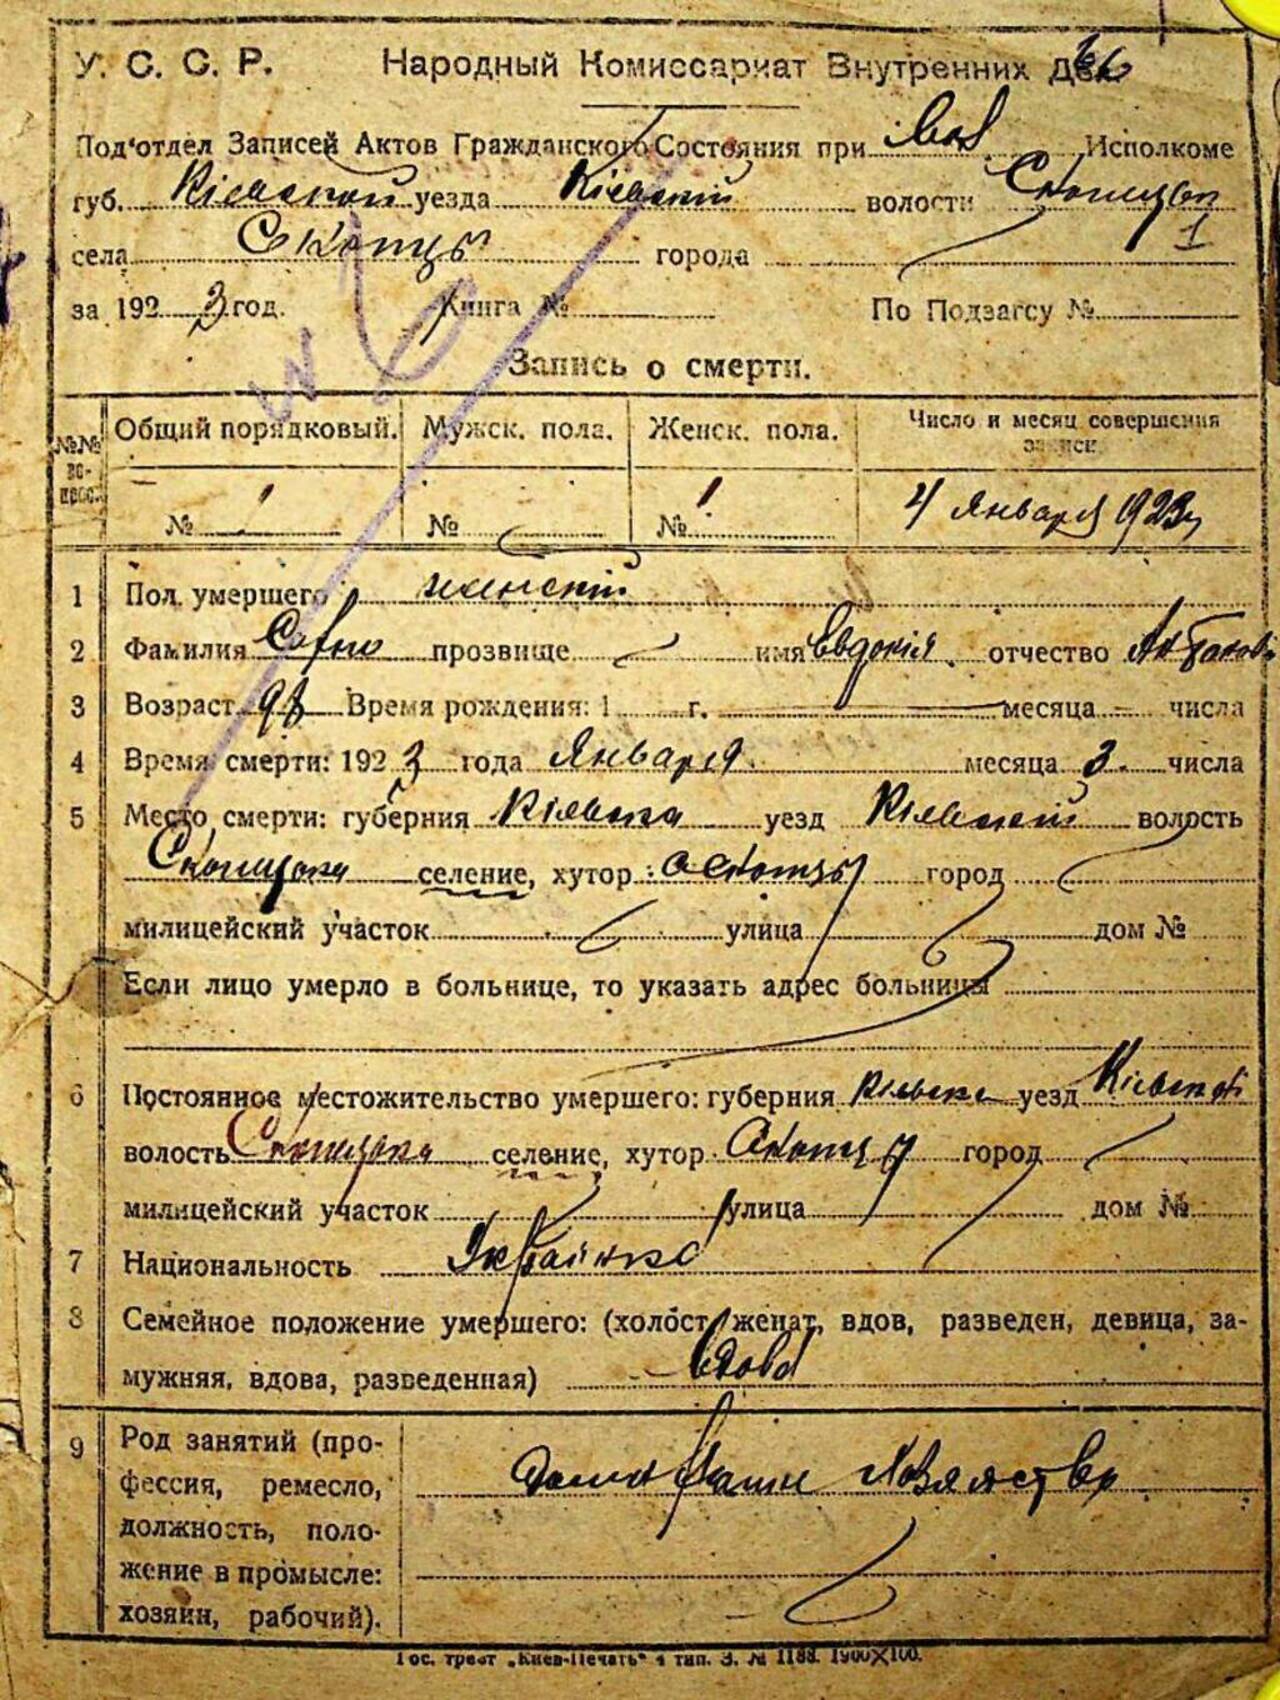 У. С. С. Р. Народный Комиссариат Внутренних Дел
Под'отдел Записей Актов Гражданского Состояния при Вол Исполкоме
губ. Кіевской уезда Кіевскій волости
села Скопцы города 1
за 1923 год. Книга № По Подзагсу №
Запись о смерти.
№№ вопрос. Общий порядковый. Мужск. пола. Женск. пола. Число и месяц совершения записи
№ 1 № № 1 4 Января 1923 г.
1 Пол умершего женскій
2 Фамилия прозвище имя Евдокія отчество
3 Возраст 98 Время рождения: 1 г. месяца числа
4 Время смерти: 1923 года Января месяца 3. числа
5 Место смерти: губерния Кіевска уезд Кіевскій волость
селение, хутор с Скопцы город
милицейский участок улица дом №
Если лицо умерло в больнице, то указать адрес больницы
6 Постоянное местожительство умершего: губерния Кіевска уезд Кіевскій
волость селение, хутор Скопцы город
милицейский участок улица дом №
7 Национальность
8 Семейное положение умершего: (холост, женат, вдов, разведен, девица, за-
мужняя, вдова, разведенная) вдова
9 Род занятий (про-
фессия, ремесло,
должность, поло-
жение в промысле:
хозяин, рабочий).
Гос. трест „Киев-Печать“ 4 тип. З. № 1188. 1900×100.